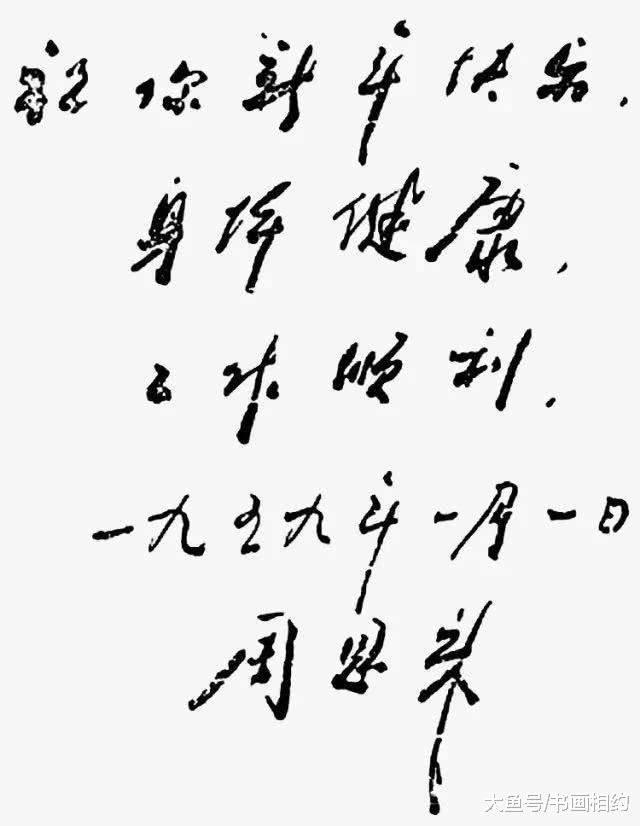 祝你新年快乐，
身体健康，
工作顺利．
一九五九年一月一日
周恩来
大鱼号/书画相约